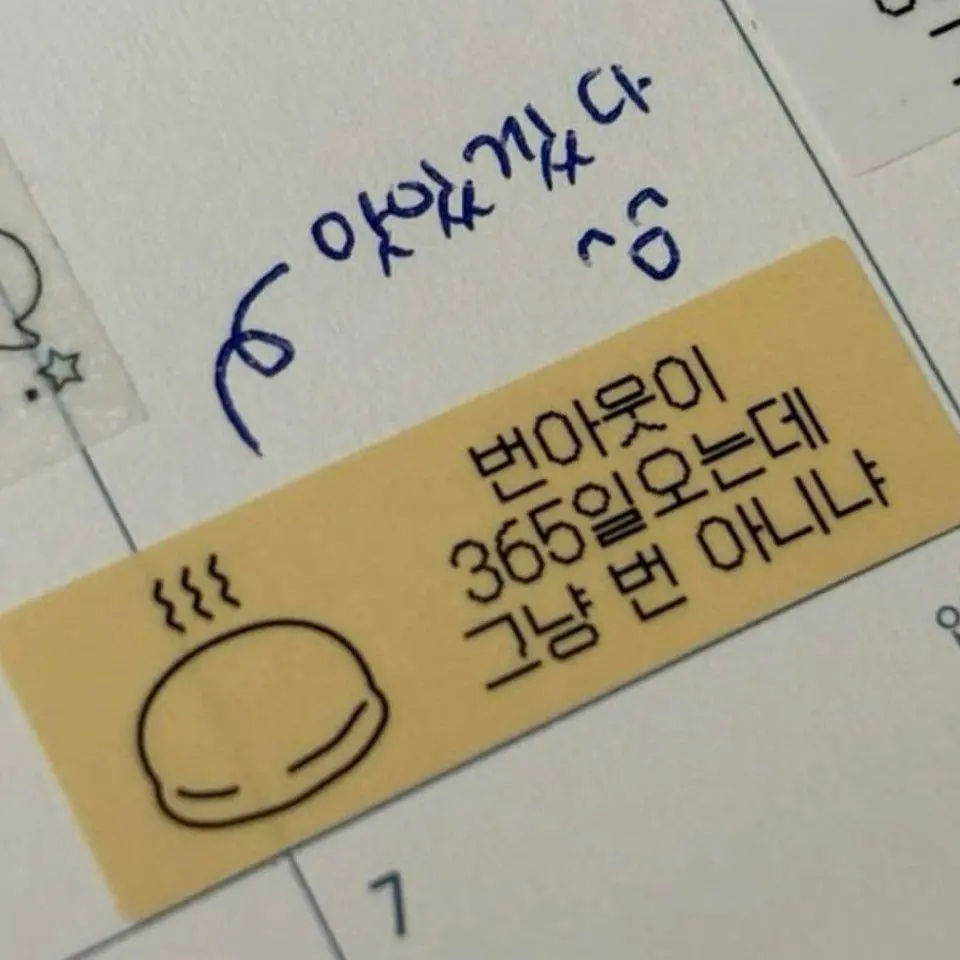 맛있겠다
^옹^
번아웃이
365일오는데
그냥 번 아니냐
7